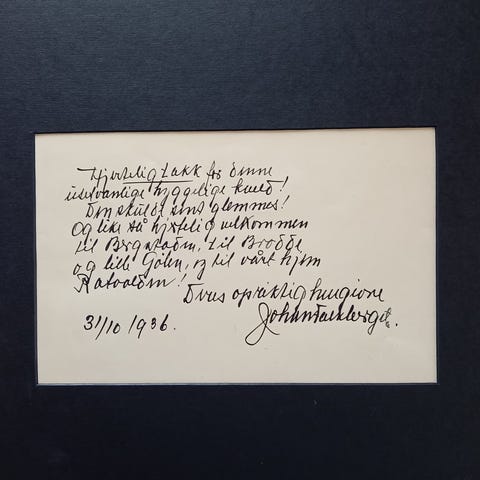 Hjertelig takk for denne
usedvanlige hyggelige kveld!
Den skulde sent glemmes!
Og like så hjertelig velkommen
til Bergstaden, til
og lille og til vårt hjem
Ratvolden!
Deres opriktig hengivne
31/10 1936. Johan Falkberget.